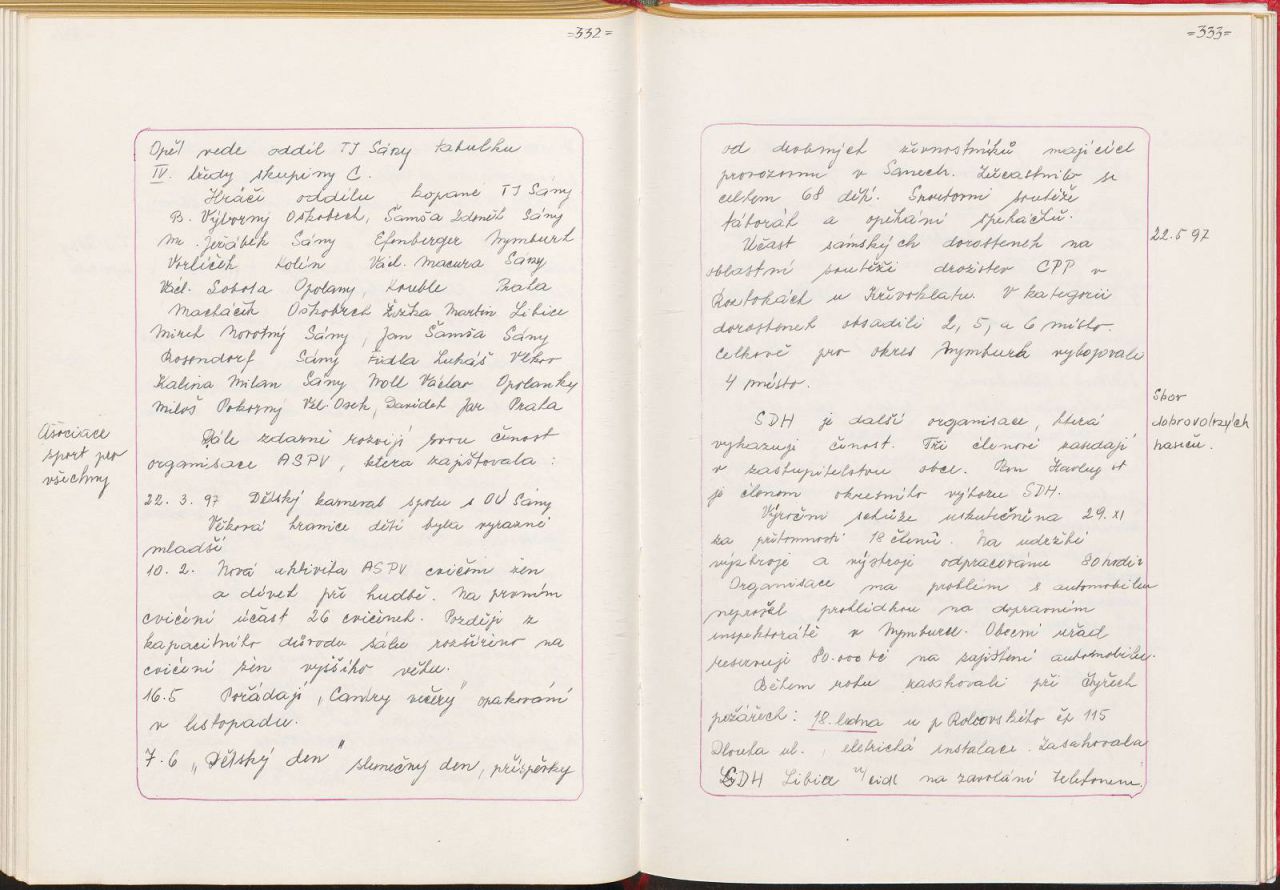 =332=
Opět vede oddíl TJ Sány tabulku
IV. třídy skupiny C.
Hráči oddílu kopané TJ Sány
B. Výborný Oskořech, Šamša Zdeněk Sány
Mr. Jeřábek Sány Efenberger Nymburk
Vorlíček Kolín Václ. Macura Sány
Václ. Sobota Opolany, Kouble Praha
Macháčik Oskobrh Žižka Martin Libice
Mirek Novotný Sány, Jan Šamša Sány
Rosendorf Sány Fidla Lukáš Vlkov
Kalina Milan Sány Woll Václav Opolanky
Miloš Pokorný Vel. Osek, Davídek Jar Praha
Asociace
sport pro
všechny
Dále zdárně rozvíjí svou činost
organisace ASPV, která zajišťovala:
22. 3. 97 Dětský karneval spolu s OÚ Sány
Věková hranice dětí byla výrazně
mladší
10. 2. Nová aktivita ASPV cvičení žen
a dívek při hudbě. Na prvním
cvičení účast 26 cvičenek. Později z
kapacitního důvodu sálu rozšířeno na
cvičení žen vyššího věku.
16.5 Pořádají „Cantry večery" opakování
v listopadu.
7.6 „Dětský den" slunečný den, příspěvky
=333=
od drobných živnostníků majících
provozovnu v Sánech. Zúčastnilo se
celkem 68 dětí. Sportovní soutěže
táborák a opékání špekáčků.
22.5 97
Účast sánských dorostenek na
oblastní soutěži družstev CPP v
Roztokách u Křivoklátu. V kategorii
dorostenek obsadili 2, 5, a 6 místo.
Celkově pro okres Nymburk vybojovali
4 místo.
Sbor
dobrovolných
hasičů.
SDH je další organisace, která
vykazuje činost. Tři členové zasedají
v zastupitelstvu obce. Pan Havlug st
je členem okresního výboru SDH.
Výroční schůze uskutečněna 29. XI
za přítomnosti 18 členů. Na udržbě
výzbroje a výstroje odpracováno 80 hodin
Organisace má problém s automobilem
neprošel prohlídkou na dopravním
inspektorátě v Nymburce. Obecní uřad
reservuje 80.000 Kč na zajištění automobilu.
Během roku zasahovali při čtyřech
požárech: 18. ledna u p Rolcovského čp 115
Dlouhá ul., eletrická instalace. Zasahovala
SDH Libice n/cidl na zavolání telefonem.